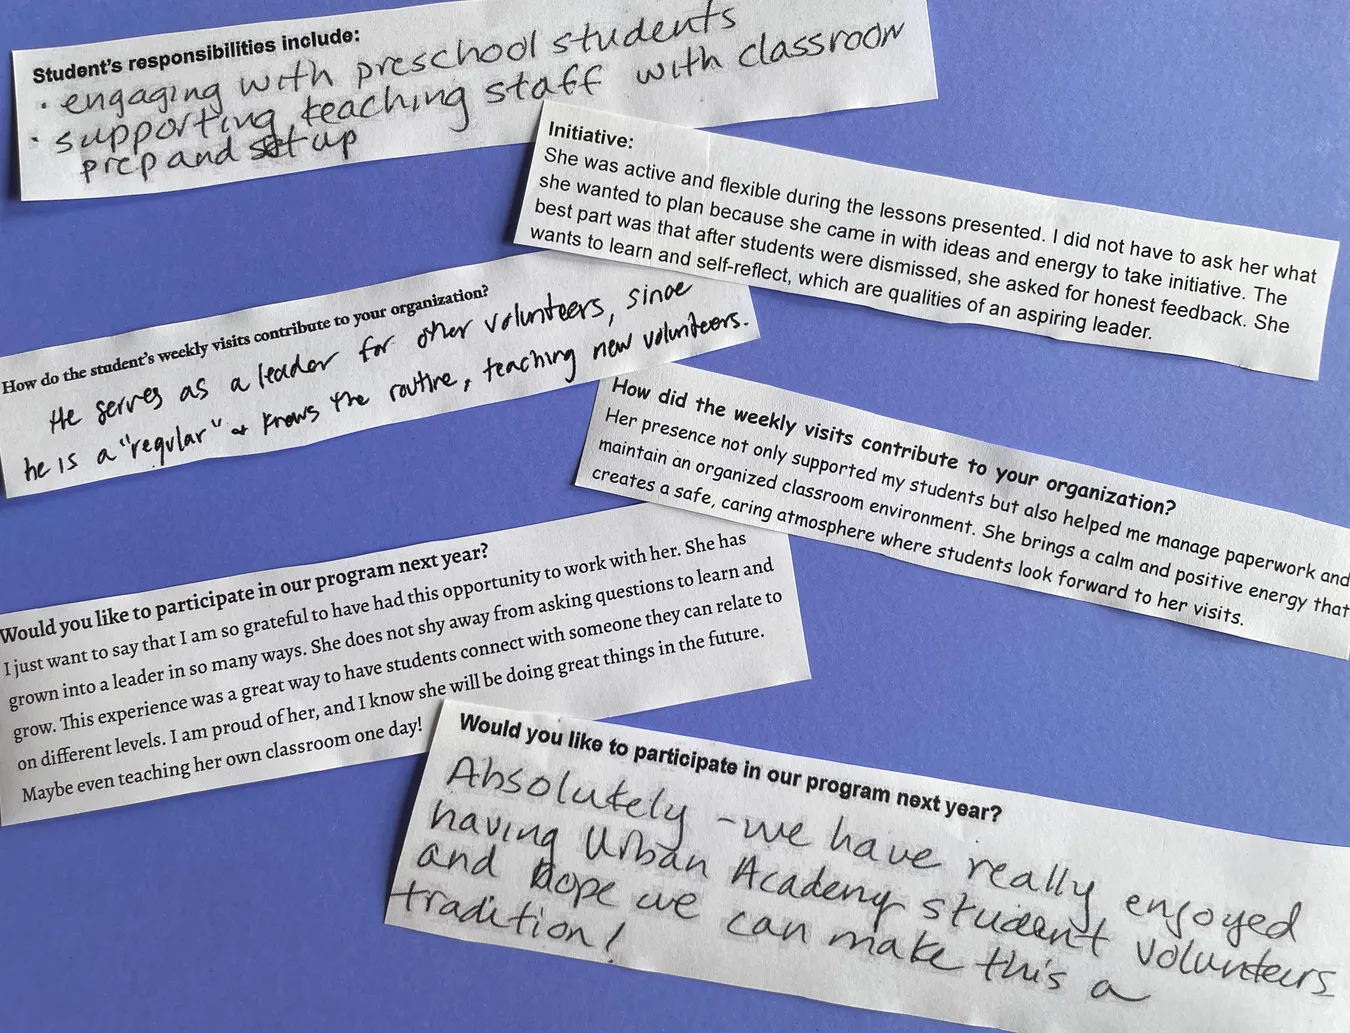 Student's responsibilities include:
· engaging with preschool students
· supporting teaching staff with classroom
prep and set up
Initiative:
She was active and flexible during the lessons presented. I did not have to ask her what
she wanted to plan because she came in with ideas and energy to take initiative. The
best part was that after students were dismissed, she asked for honest feedback. She
wants to learn and self-reflect, which are qualities of an aspiring leader.
How do the student's weekly visits contribute to your organization?
He serves as a leader for other volunteers, since
he is a "regular" & knows the routine, teaching new volunteers.
How did the weekly visits contribute to your organization?
Her presence not only supported my students but also helped me manage paperwork and
maintain an organized classroom environment. She brings a calm and positive energy that
creates a safe, caring atmosphere where students look forward to her visits.
Would you like to participate in our program next year?
I just want to say that I am so grateful to have had this opportunity to work with her. She has
grown into a leader in so many ways. She does not shy away from asking questions to learn and
grow. This experience was a great way to have students connect with someone they can relate to
on different levels. I am proud of her, and I know she will be doing great things in the future.
Maybe even teaching her own classroom one day!
Would you like to participate in our program next year?
Absolutely - we have really enjoyed
having Urban Academy student volunteers
and hope we can make this a
tradition!